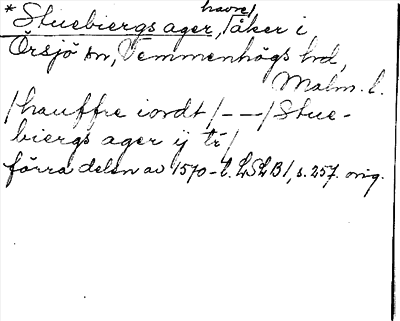 havre/
*Stuebiergs ager, /åker i
Örsjö sn, Vemmenhögs hd,
Malm. l.
/hauffre iordt /---/ Stue-
biergs ager ij tr/
förra delen av 1570-t. LSLB1, s. 257. orig.